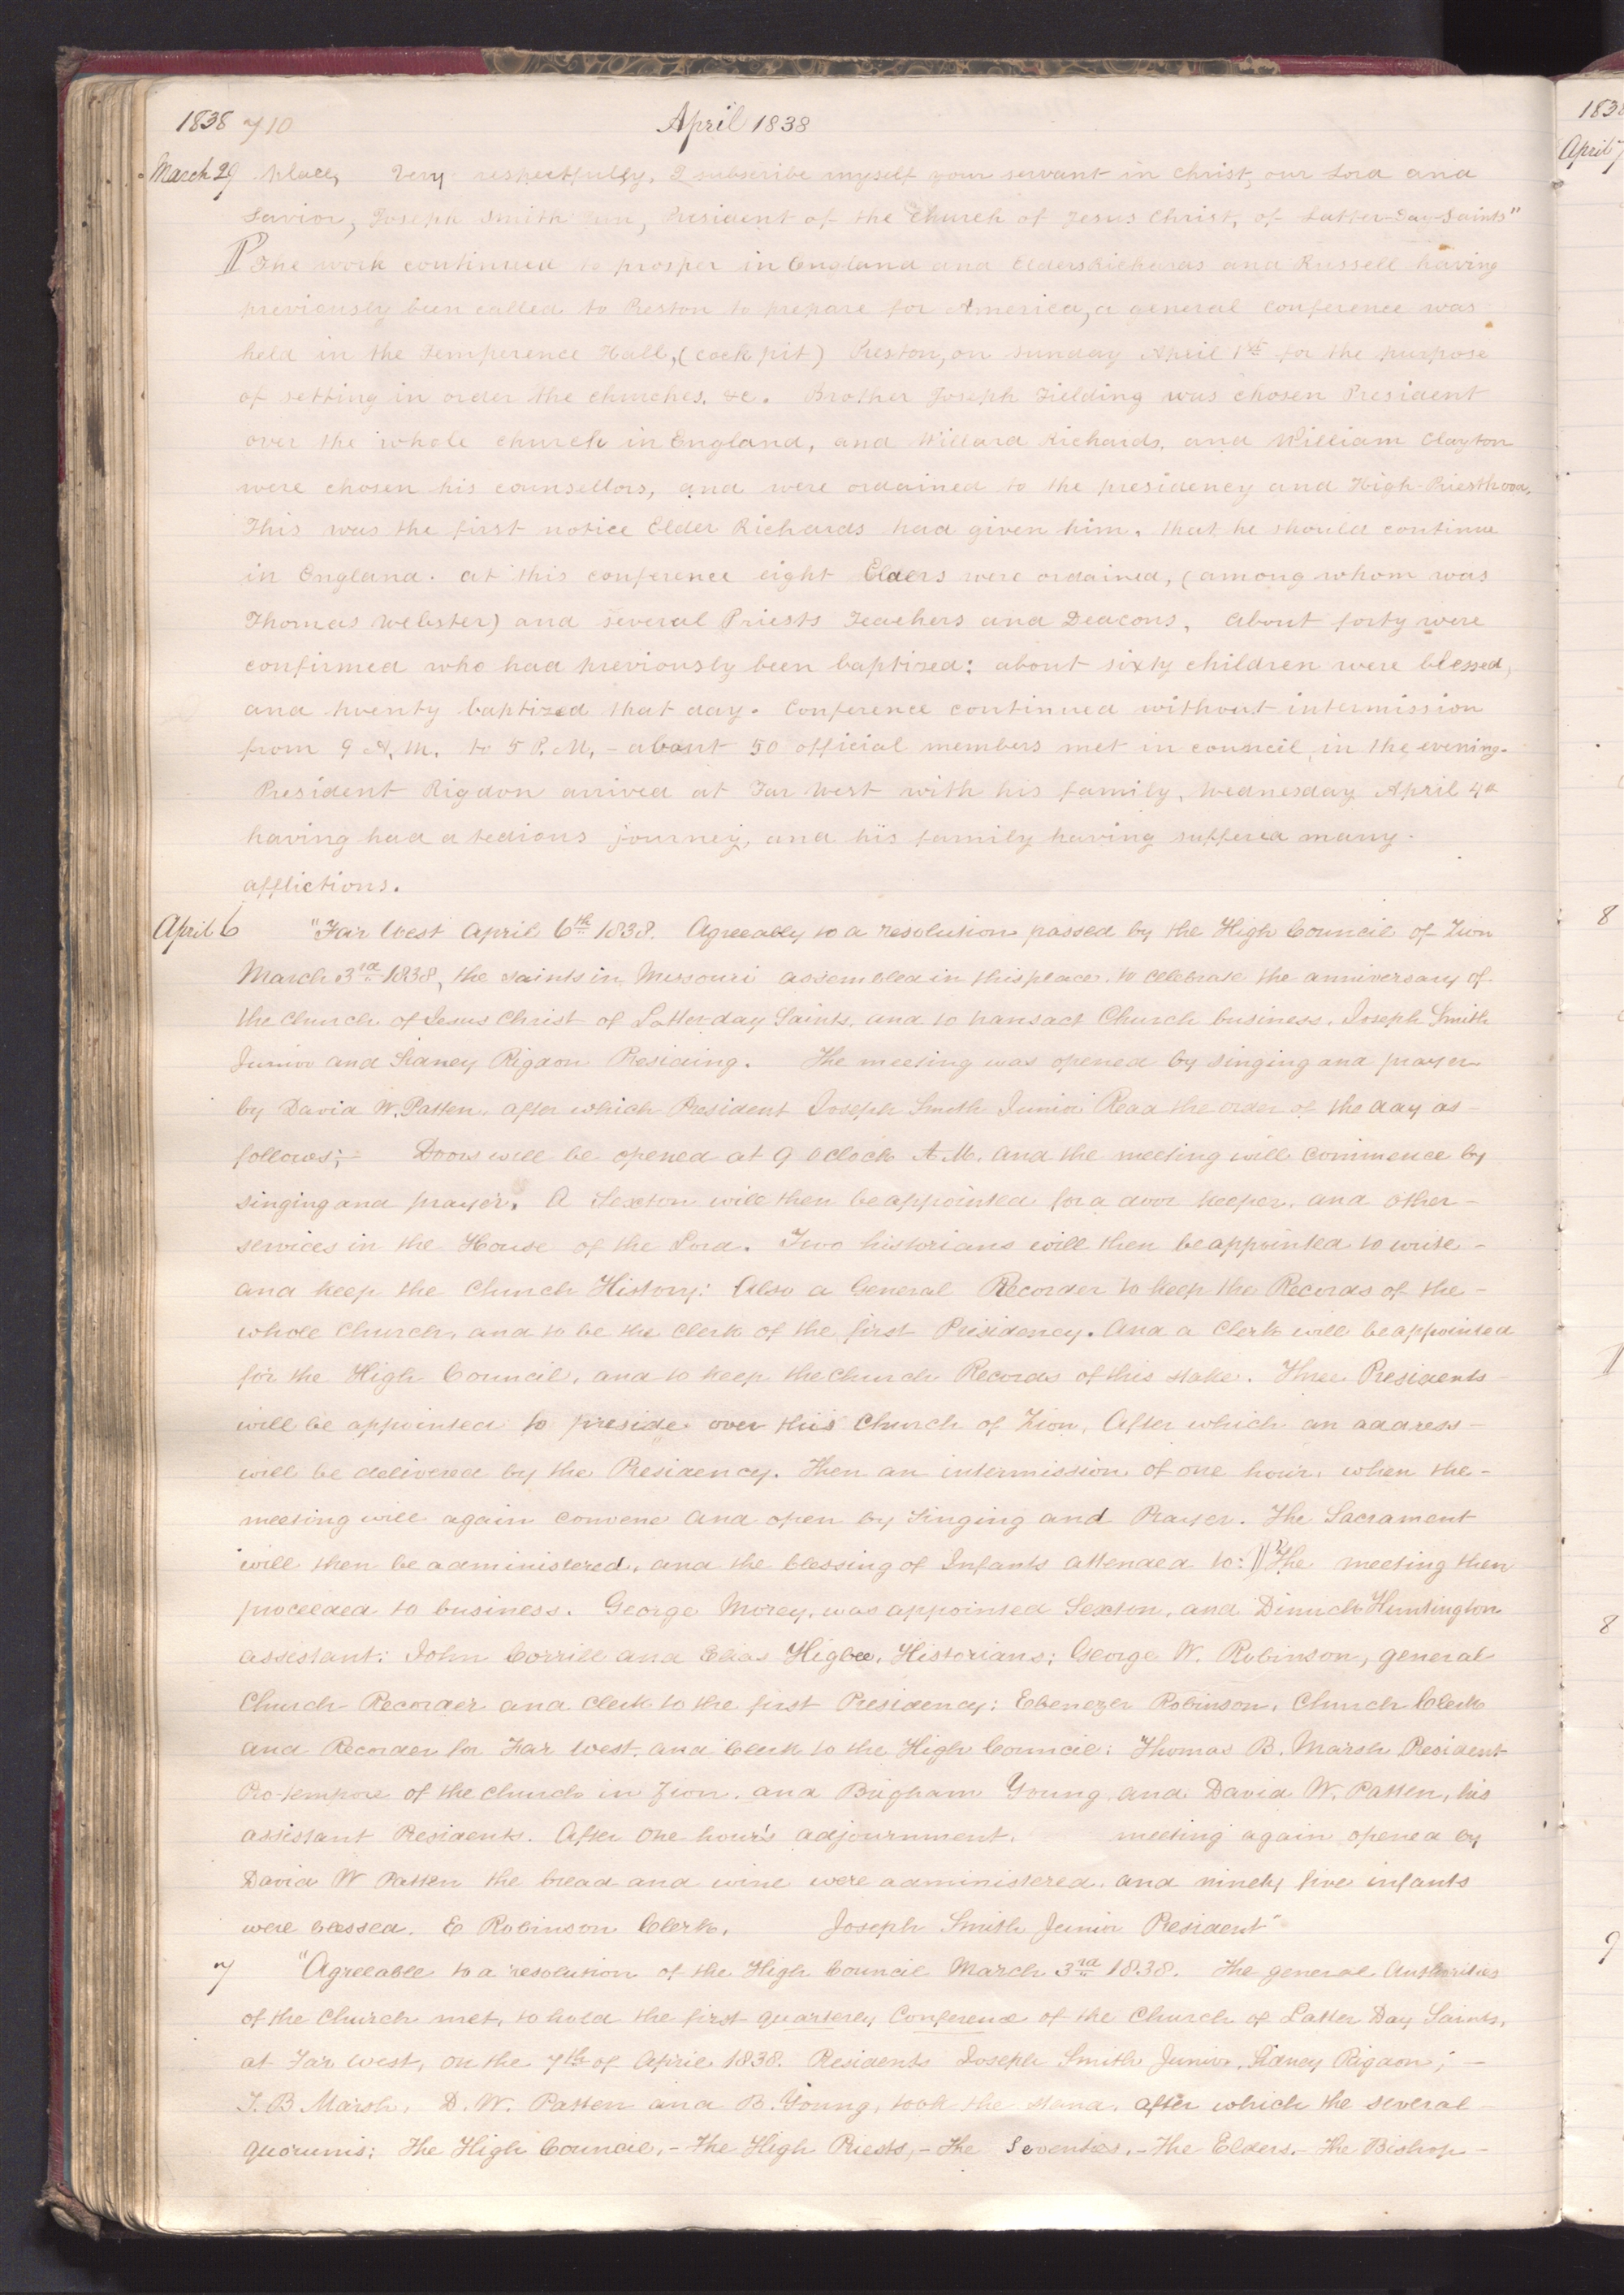 1838 710 April 1838
March 29 place, Very respectfully, I subscribe myself your servant in christ, our Lord and
Savior, Joseph Smith Jun, President of the Church of Jesus Christ, of Latter-Day-Saints"
The work continued to prosper in England and Elders Richards and Russell having
previously been called to Preston to prepare for America, a general conference was
held in the Temperence Hall, (cock pit) Preston, on sunday April 1st for the purpose
of setting in order the churches, &c. Brother Joseph Fielding was chosen President
over the whole church in England, and Willard Richards, and William Clayton
were chosen his counsellors, and were ordained to the presidency and High-Priesthood,
This was the first notice Elder Richards had given him, that he should continue
in England. at this conference eight Elders were ordained, (among whom was
Thomas Webster) and several Priests Teachers and Deacons, About forty were
confirmed who had previously been baptized: about sixty children were blessed,
and twenty baptized that day. Conference continued without intermission
from 9 A, M, to 5 P. M, - about 50 official members met in council, in the evening.
President Rigdon arrived at Far West with his family, Wednesday April 4th
having had a tedious journey, and his family having suffered many
afflictions.
April 6 "Far West April 6th 1838. Agreeably to a resolution passed by the High Council of Zion
March 3rd 1838, the saints in Missouri assembled in this place, to celebrate the anniversary of
the Church of Jesus Christ of Latter day Saints, and to transact Church business, Joseph Smith
Junior and Sidney Rigdon Presiding. The meeting was opened by singing and prayer
by David W. Patten, after which President Joseph Smith Junior Read the order of the day as
follows;- Doors will be opened at 9 oClock A. M. and the meeting will commence by
singing and prayer. A Sexton will then be appointed for a door keeper, and other
services in the House of the Lord. Two historians will then be appointed to write
and keep the Church History: Also a General Recorder to keep the Records of the
whole Church, and to be the Clerk of the first Presidency. And a Clerk will be appointed
for the High Council, and to keep the Church Records of this stake. Three Presidents
will be appointed to preside over this Church of Zion, After which an address
will be delivered by the Presidency. Then an intermission of one hour, when the
meeting will again convene and open by Singing and Prayer. The Sacrament
will then be administered, and the blessing of Infants attended to: The meeting then
proceeded to business. George Morey, was appointed Sexton, and Dimick Huntington
assistant: John Corrill and Elias Higbee, Historians; George W. Robinson, general
Church Recorder and clerk to the first Presidency; Ebenezer Robinson, Church Clerk
and Recorder for Far West, and Clerk to the High Council: Thomas B. Marsh President
Pro-tempore of the Church in Zion, and Brigham Young, and David W. Patten, his
assistant Presidents. After One hour's adjournment, meeting again opened by
David W Patten the bread and wine were administered, and ninety five infants
were blessed. E Robinson Clerk, Joseph Smith Junior President"
7 "Agreeable to a resolution of the High Council March 3rd 1838. The general Authorities
of the Church met, to hold the first quarterly Conference of the Church of Latter Day Saints,
at Far West, on the 7th of April 1838. Presidents Joseph Smith Junior, Sidney Rigdon;
T. B Marsh, D. W. Patten and B. Young, took the stand, after which the several
quorums: The High Council,- The High Priests,- The Seventies,- The Elders,- The Bishop-
1838
April 7
8
8
9